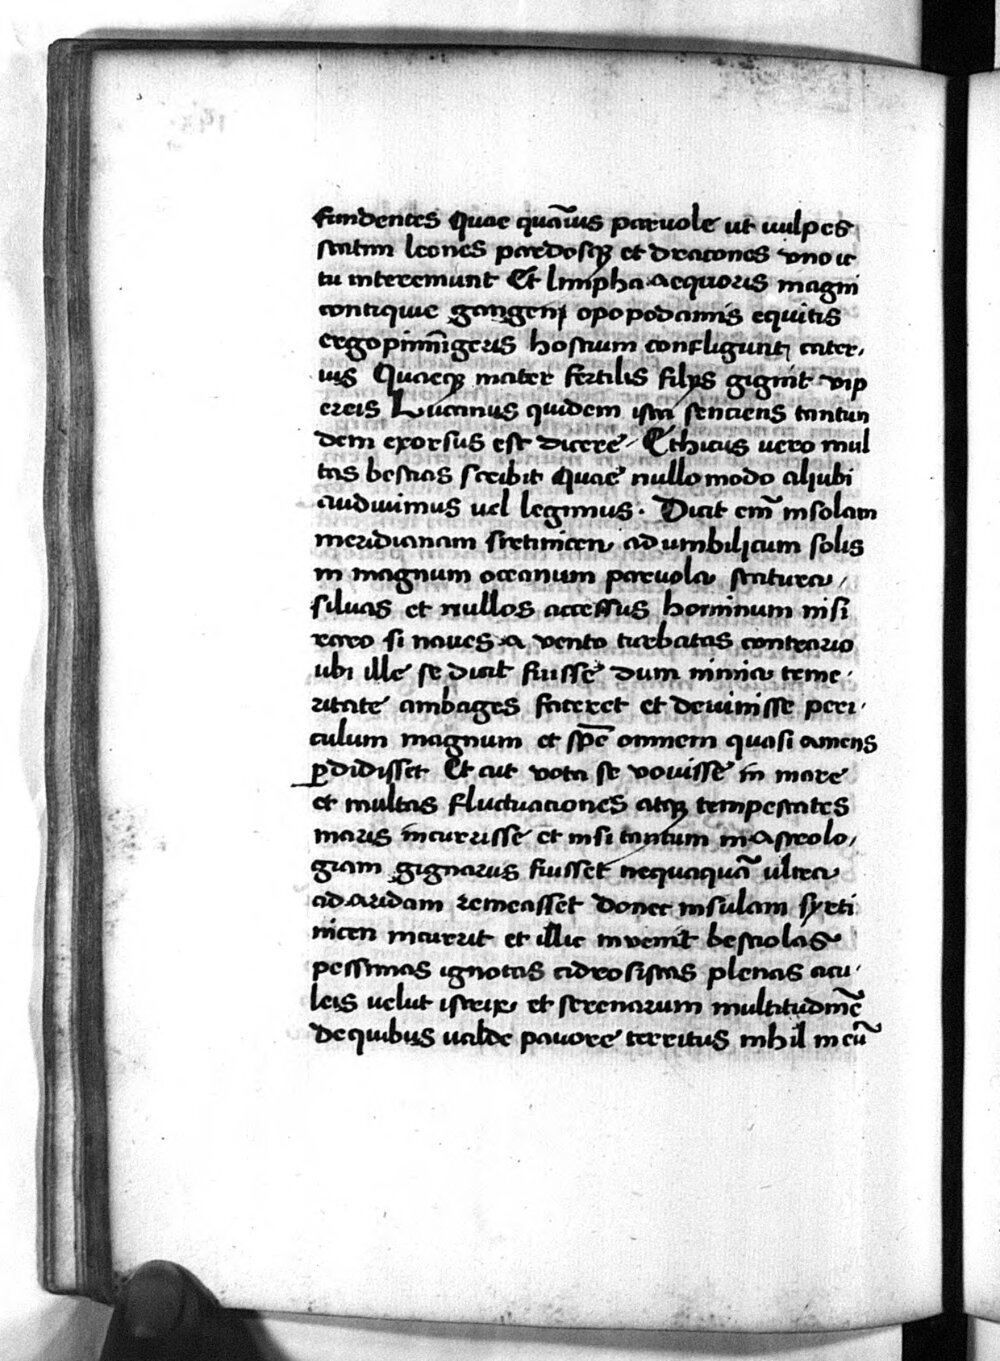 fundentes Quae quāuis paruole ut uulpes
statim leones pardosq et dracones uno ic
tu interemunt Et limpha aequoris magni
contiquie gangenj opopodamis equitis
ergo pinnigeris hostium confligunt cater,
uis Quaeq mater fertilis filijs gignit vip
ereis Lucanus quidem ista senciens tantun
dem exorsus est dicere / Ethicus uero mul
tas bestias scribit Quae nullo modo aljubi
audiuimus uel legimus . Dicit em̄ insolam
meridianam siretinicen ad umbilicum solis
in magnum oceanum paruola statura /
siluas et nullos accessus hominum nisi
raro si naues a vento turbatas contrario
ubi ille se dicit fuisse dum nimia teme
ritate ambages faceret et deuinisse peri
culum magnum et spē omnem quasi amens
pdidisset Et aut vota se vouisse in mare
et multas fluctuaciones atq tempestates
maris incurrisse et nisi tantum in astrolo,
giam gignarus fuisset nequaquā ultra
ad aridam remeasset donec insulam syrti
nicen incurrit et illic inuenit bestiolas
pessimas ignotas cidrosistas plenas acu
leis uelut istrix et serenarum multitudinē
de quibus ualde pauore territus nihil in eū